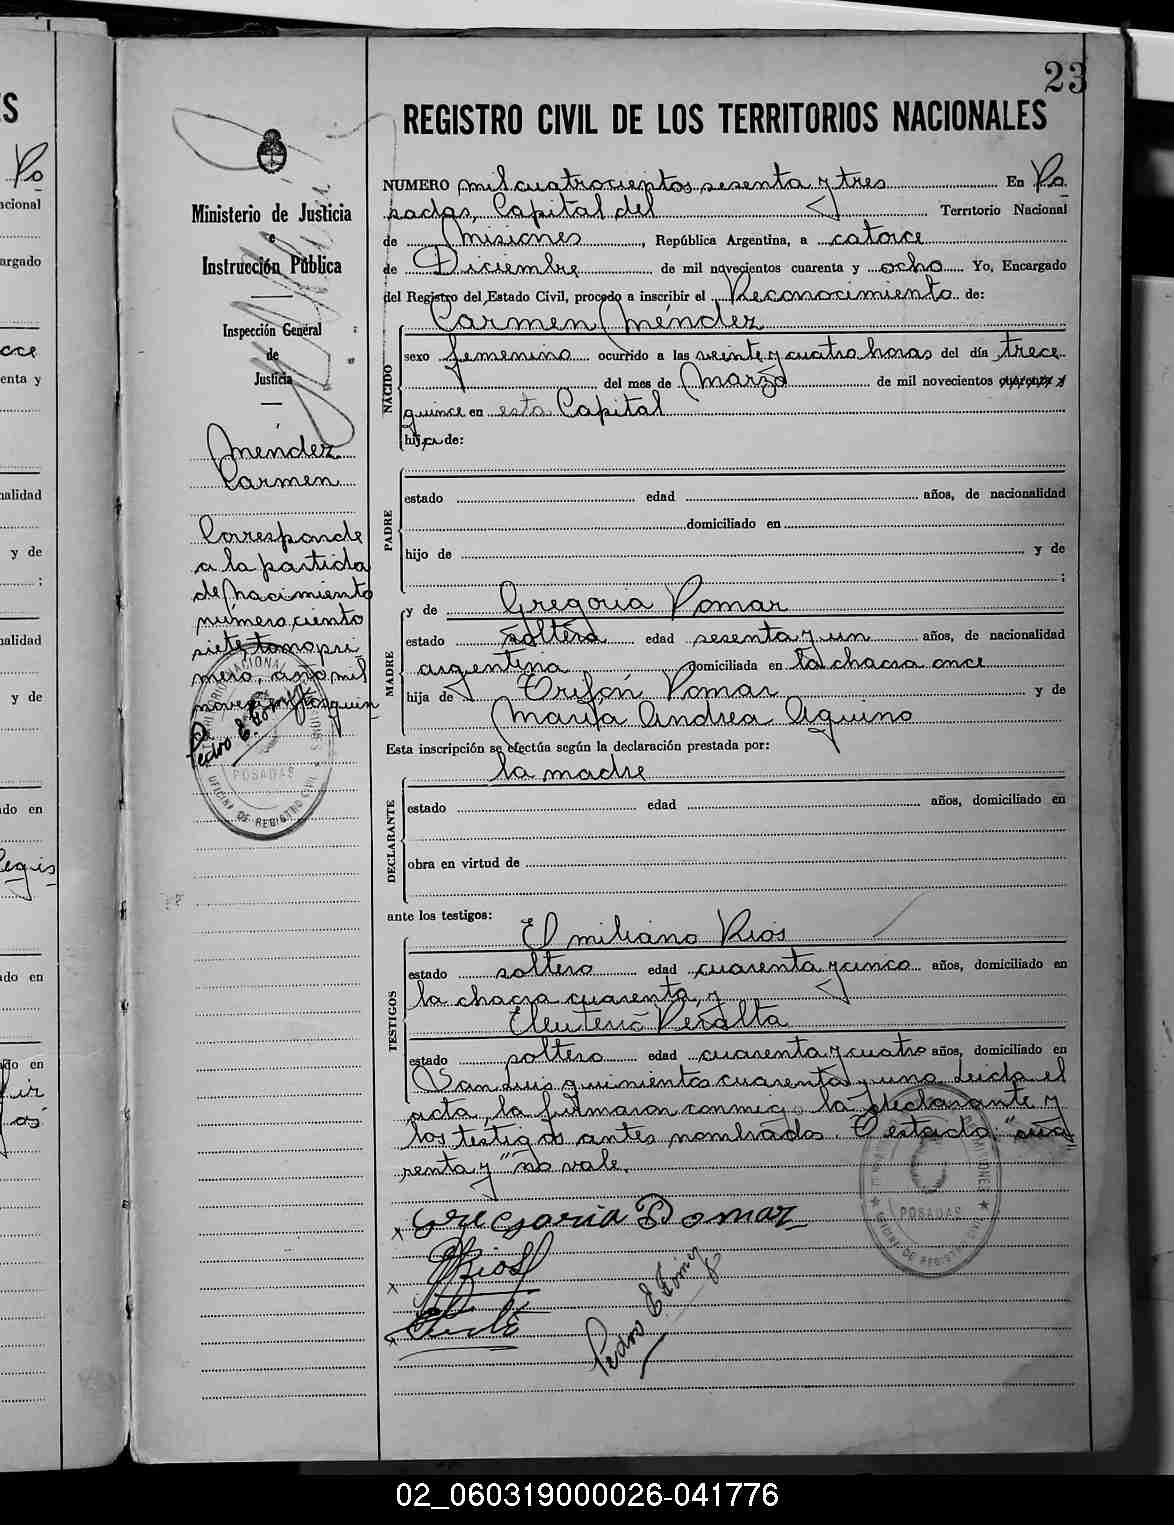 23
REGISTRO CIVIL DE LOS TERRITORIOS NACIONALES
NUMERO mil cuatrocientos sesenta y tres En Po
sadas, Capital del Territorio Nacional
de Misiones, República Argentina, a catorce
de Diciembre de mil novecientos cuarenta y ocho Yo, Encargado
del Registro del Estado Civil, procedo a inscribir el Reconocimiento de:
Carmen Méndez
NACIDO
sexo femenino ocurrido a las veinte y cuatro horas del día trece
del mes de Marzo de mil novecientos cuarenta y
quince en esta Capital
hija de:
PADRE
estado edad años, de nacionalidad
domiciliado en
hijo de y de
:
MADRE
y de Gregoria Pomar
estado soltera edad sesenta y un años, de nacionalidad
argentina domiciliada en la chacra once
hija de Trifón Pomar y de
María Andrea Aguino
Esta inscripción se efectúa según la declaración prestada por:
la madre
DECLARANTE
estado edad años, domiciliado en
obra en virtud de
ante los testigos:
TESTIGOS
Emiliano Rios
estado soltero edad cuarenta y cinco años, domiciliado en
la chacra cuarenta, y
Eleuterio Peralta
estado soltero edad cuarenta y cuatro años, domiciliado en
San Luis quinientos cuarenta y uno. Leida el
acta, la firmaron conmigo la declarante y
los testigos antes nombrados. Testado: "cua
renta y" no vale.
x Gregoria Pomar
x Rios
x
Pedro E Gómez
Ministerio de Justicia
e
Instrucción Pública
Inspección General
de
Justicia
Méndez
Carmen
Corresponde
a la partida
de Nacimiento
número ciento
siete, tomo pri
mero, año mil
novecientos quin
Pedro E. Gómez
POSADAS
OFICINA DE REGISTRO CIVIL
POSADAS
OFICINA DE REGISTRO CIVIL
MISIONES
ES
Po
acional
argado
enta y
nalidad
y de
:
nalidad
y de
do en
do en
do en
02_060319000026-041776